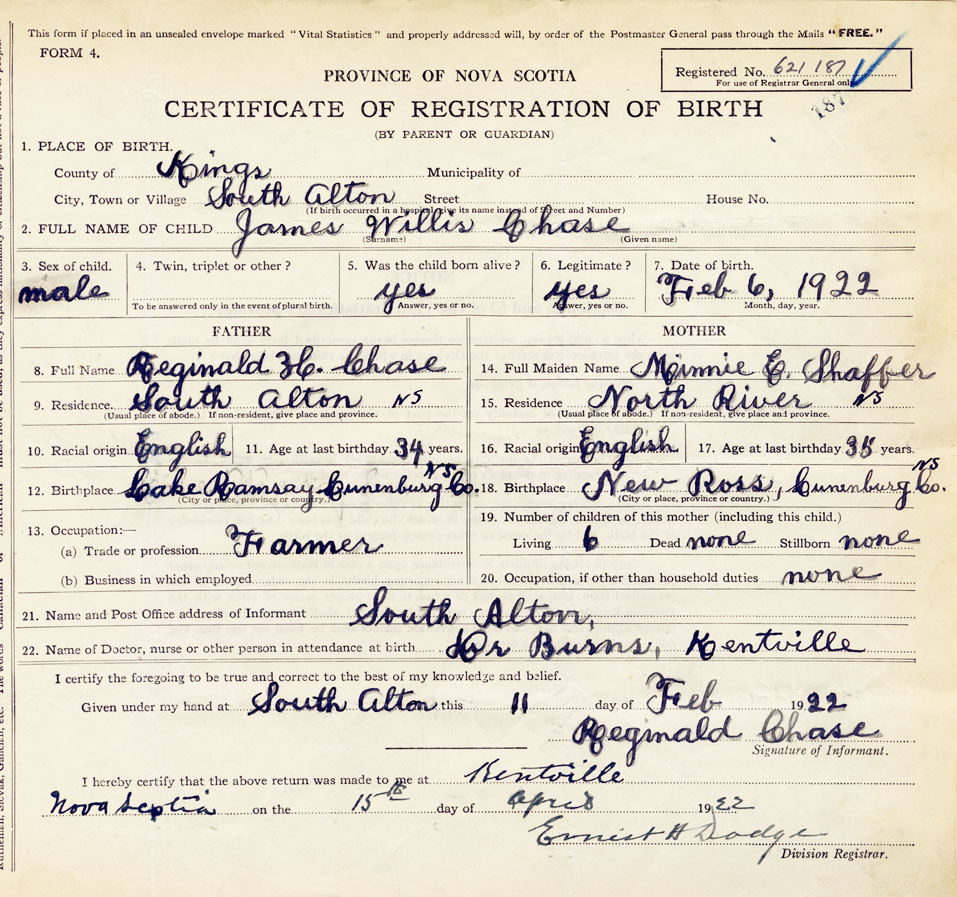 This form if placed in an unsealed envelope marked "Vital Statistics" and properly addressed will, by order of the Postmaster General pass through the Mails "FREE."
FORM 4.
Registered No. 621 187
For use of Registrar General only
187
PROVINCE OF NOVA SCOTIA
CERTIFICATE OF REGISTRATION OF BIRTH
(BY PARENT OR GUARDIAN)
1. PLACE OF BIRTH.
County of Kings Municipality of
City, Town or Village South Alton Street House No.
(If birth occurred in a hospital give its name instead of Street and Number)
2. FULL NAME OF CHILD James Willis Chase
(Surname) (Given name)
3. Sex of child. 4. Twin, triplet or other? 5. Was the child born alive? 6. Legitimate? 7. Date of birth.
male yes yes Feb 6, 1922
To be answered only in the event of plural birth. Answer, yes or no. Answer, yes or no. Month, day, year.
FATHER
8. Full Name Reginald H. Chase
9. Residence. South Alton NS
(Usual place of abode.) If non-resident, give place and province.
10. Racial origin English 11. Age at last birthday 34 years.
12. Birthplace Lake Ramsay Lunenburg Co. NS
(City or place, province or country.)
13. Occupation:—
(a) Trade or profession Farmer
(b) Business in which employed
MOTHER
14. Full Maiden Name Minnie E. Shaffer
15. Residence North River NS
(Usual place of abode.) If non-resident, give place and province.
16. Racial origin English 17. Age at last birthday 35 years.
18. Birthplace New Ross, Lunenburg Co. NS
(City or place, province or country.)
19. Number of children of this mother (including this child.)
Living 6 Dead none Stillborn none
20. Occupation, if other than household duties none
21. Name and Post Office address of Informant South Alton,
22. Name of Doctor, nurse or other person in attendance at birth Dr Burns, Kentville
I certify the foregoing to be true and correct to the best of my knowledge and belief.
Given under my hand at South Alton this 11 day of Feb 1922
Reginald Chase
Signature of Informant.
I hereby certify that the above return was made to me at Kentville
Nova Scotia on the 15th day of April 1922
Ernest H Dodge
Division Registrar.